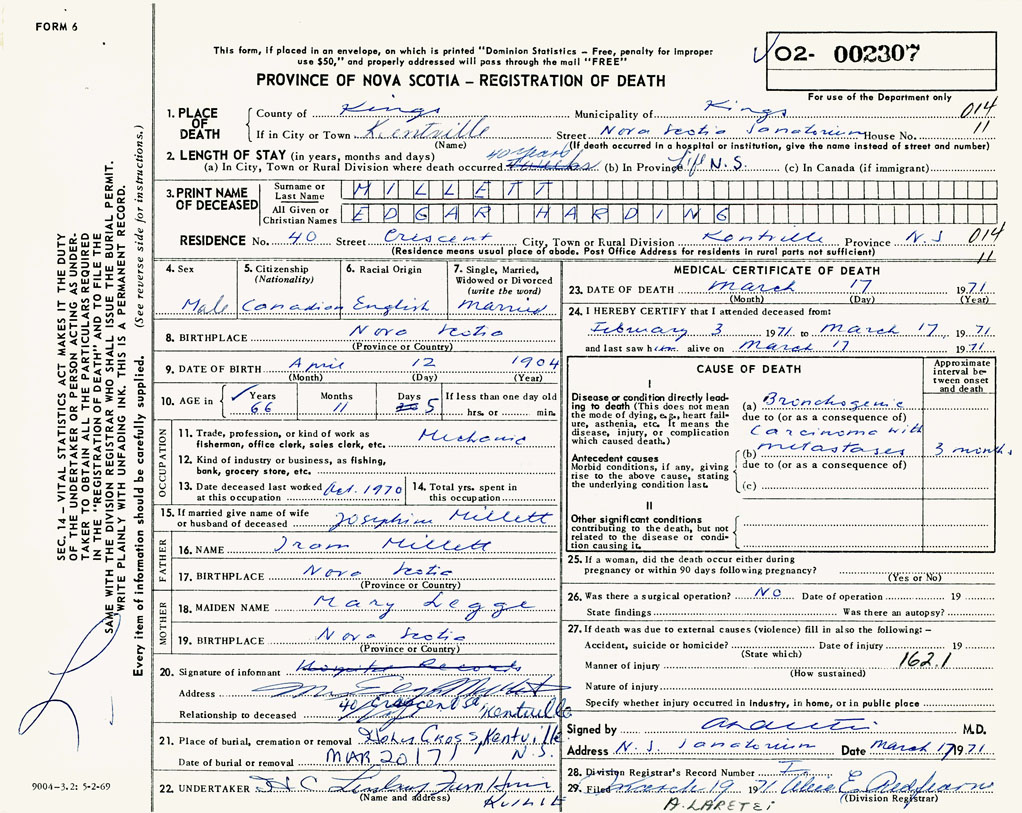 FORM 6
This form, if placed in an envelope, on which is printed "Dominion Statistics – Free, penalty for improper
use $50," and properly addressed will pass through the mail "FREE"
PROVINCE OF NOVA SCOTIA – REGISTRATION OF DEATH
02- 002307
For use of the Department only
1. PLACE OF DEATH
County of Kings Municipality of Kings 014
If in City or Town Kentville Street Nova Scotia Sanatorium House No. 11
(Name) (If death occurred in a hospital or institution, give the name instead of street and number)
2. LENGTH OF STAY (in years, months and days) 40 years
(a) In City, Town or Rural Division where death occurred (b) In Province Life N.S. (c) In Canada (if immigrant)
3. PRINT NAME OF DECEASED
Surname or Last Name MILLETT
All Given or Christian Names EDGAR HARDING
RESIDENCE No. 40 Street Crescent City, Town or Rural Division Kentville Province N.S 014
(Residence means usual place of abode. Post Office Address for residents in rural parts not sufficient) 11
4. Sex
Male
5. Citizenship
(Nationality)
Canadian
6. Racial Origin
English
7. Single, Married,
Widowed or Divorced
(write the word)
Married
8. BIRTHPLACE Nova Scotia
(Province or Country)
9. DATE OF BIRTH April 12 1904
(Month) (Day) (Year)
10. AGE in Years 66 Months 11 Days 5 If less than one day old
hrs. or min.
OCCUPATION
11. Trade, profession, or kind of work as
fisherman, office clerk, sales clerk, etc. Mechanic
12. Kind of industry or business, as fishing,
bank, grocery store, etc.
13. Date deceased last worked
at this occupation Oct. 1970
14. Total yrs. spent in
this occupation
15. If married give name of wife
or husband of deceased Josephine Millett
FATHER
16. NAME Millett
17. BIRTHPLACE Nova Scotia
(Province or Country)
MOTHER
18. MAIDEN NAME Mary Legge
19. BIRTHPLACE Nova Scotia
(Province or Country)
20. Signature of informant Hospital Records
Mrs Edgar Millett
Address 40 Crescent St
Relationship to deceased Kentville
21. Place of burial, cremation or removal Holy Cross, Kentville
Date of burial or removal MAR 20 171 N.S.
22. UNDERTAKER
(Name and address)
MEDICAL CERTIFICATE OF DEATH
23. DATE OF DEATH March 17 1971
(Month) (Day) (Year)
24. I HEREBY CERTIFY that I attended deceased from:
February 3 1971 to March 17 1971
and last saw him alive on March 17 1971
CAUSE OF DEATH
Approximate
interval be-
tween onset
and death
I
Disease or condition directly lead-
ing to death (This does not mean
the mode of dying, e.g., heart fail-
ure, asthenia, etc. It means the
disease, injury, or complication
which caused death.)
(a) Bronchogenic
due to (or as a consequence of)
Carcinoma with
Antecedent causes
Morbid conditions, if any, giving
rise to the above cause, stating
the underlying condition last.
(b) metastases 3 months
due to (or as a consequence of)
(c)
II
Other significant conditions
contributing to the death, but not
related to the disease or condi-
tion causing it.
25. If a woman, did the death occur either during
pregnancy or within 90 days following pregnancy?
(Yes or No)
26. Was there a surgical operation? NO Date of operation 19
State findings Was there an autopsy?
27. If death was due to external causes (violence) fill in also the following: –
Accident, suicide or homicide? Date of injury 19
(State which) 162.1
Manner of injury
(How sustained)
Nature of injury
Specify whether injury occurred in industry, in home, or in public place
Signed by M.D.
Address N.S. Sanatorium Date March 17 1971
28. Division Registrar's Record Number
29. Filed March 19 1971
(Division Registrar)
A. LARETEI
SEC. 14 – VITAL STATISTICS ACT MAKES IT THE DUTY
OF THE UNDERTAKER OR PERSON ACTING AS UNDER-
TAKER TO OBTAIN ALL THE PARTICULARS REQUIRED
IN THE "REGISTRATION OF DEATH" AND TO FILE THE
SAME WITH THE DIVISION REGISTRAR WHO SHALL ISSUE THE BURIAL PERMIT.
WRITE PLAINLY WITH UNFADING INK. THIS IS A PERMANENT RECORD.
Every item of information should be carefully supplied. (See reverse side for instructions.)
9004-3.2: 5-2-69